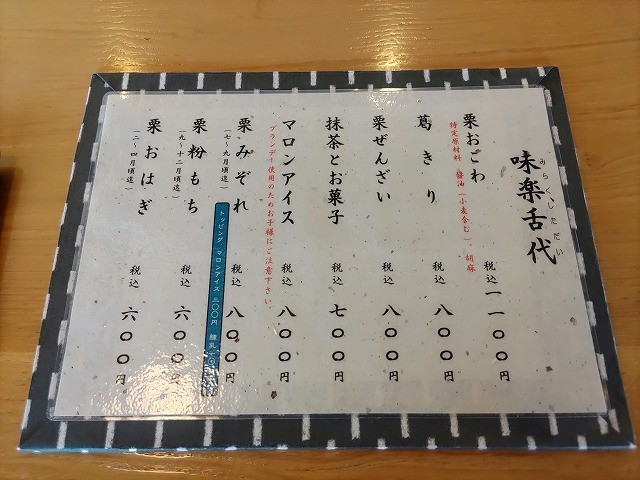 味楽舌代
みらくしただい
栗おこわ 税込 一一〇〇円
特定原材料 醤油(小麦含む)、胡麻
葛きり 税込 八〇〇円
栗ぜんざい 税込 八〇〇円
抹茶とお菓子 税込 七〇〇円
マロンアイス 税込 八〇〇円
ブランデー使用のためお子様にご注意下さい。
栗みぞれ 税込 八〇〇円
(七~九月頃迄)
トッピング マロンアイス 三〇〇円 練乳 一〇〇円
栗粉もち 税込 六〇〇円
(九~十二月頃迄)
栗おはぎ 税込 六〇〇円
(二~四月頃迄)